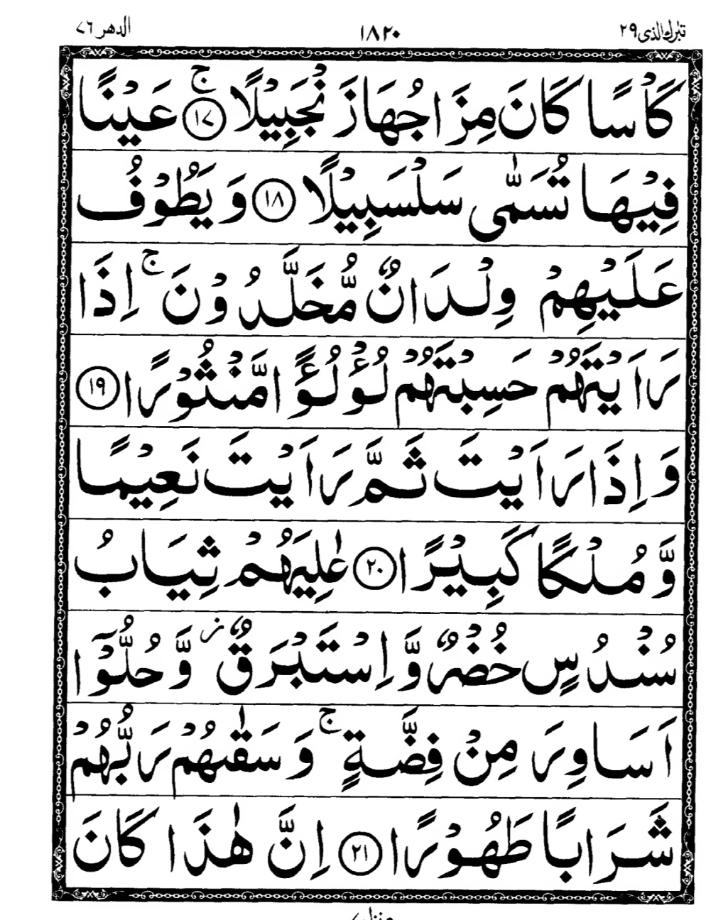 تبٰرك الذی ۲۹ ۱۸۲۰ الدھر ۷٦
كَاْسًا كَانَ مِزَاجُهَا زَنْجَبِيْلًا ۚ ﴿۱۷﴾ عَيْنًا
فِيْهَا تُسَمّٰى سَلْسَبِيْلًا ﴿۱۸﴾ وَ يَطُوْفُ
عَلَيْهِمْ وِلْدَانٌ مُّخَلَّدُوْنَ ۚ اِذَا
رَاَيْتَهُمْ حَسِبْتَهُمْ لُؤْلُؤًا مَّنْثُوْرًا ﴿۱۹﴾
وَ اِذَا رَاَيْتَ ثَمَّ رَاَيْتَ نَعِيْمًا
وَّ مُلْكًا كَبِيْرًا ﴿۲۰﴾ عٰلِيَهُمْ ثِيَابُ
سُنْدُسٍ خُضْرٌ وَّ اِسْتَبْرَقٌ ز وَّ حُلُّوْۤا
اَسَاوِرَ مِنْ فِضَّةٍ ۚ وَ سَقٰىهُمْ رَبُّهُمْ
شَرَابًا طَهُوْرًا ﴿۲۱﴾ اِنَّ هٰذَا كَانَ
منزل ۷